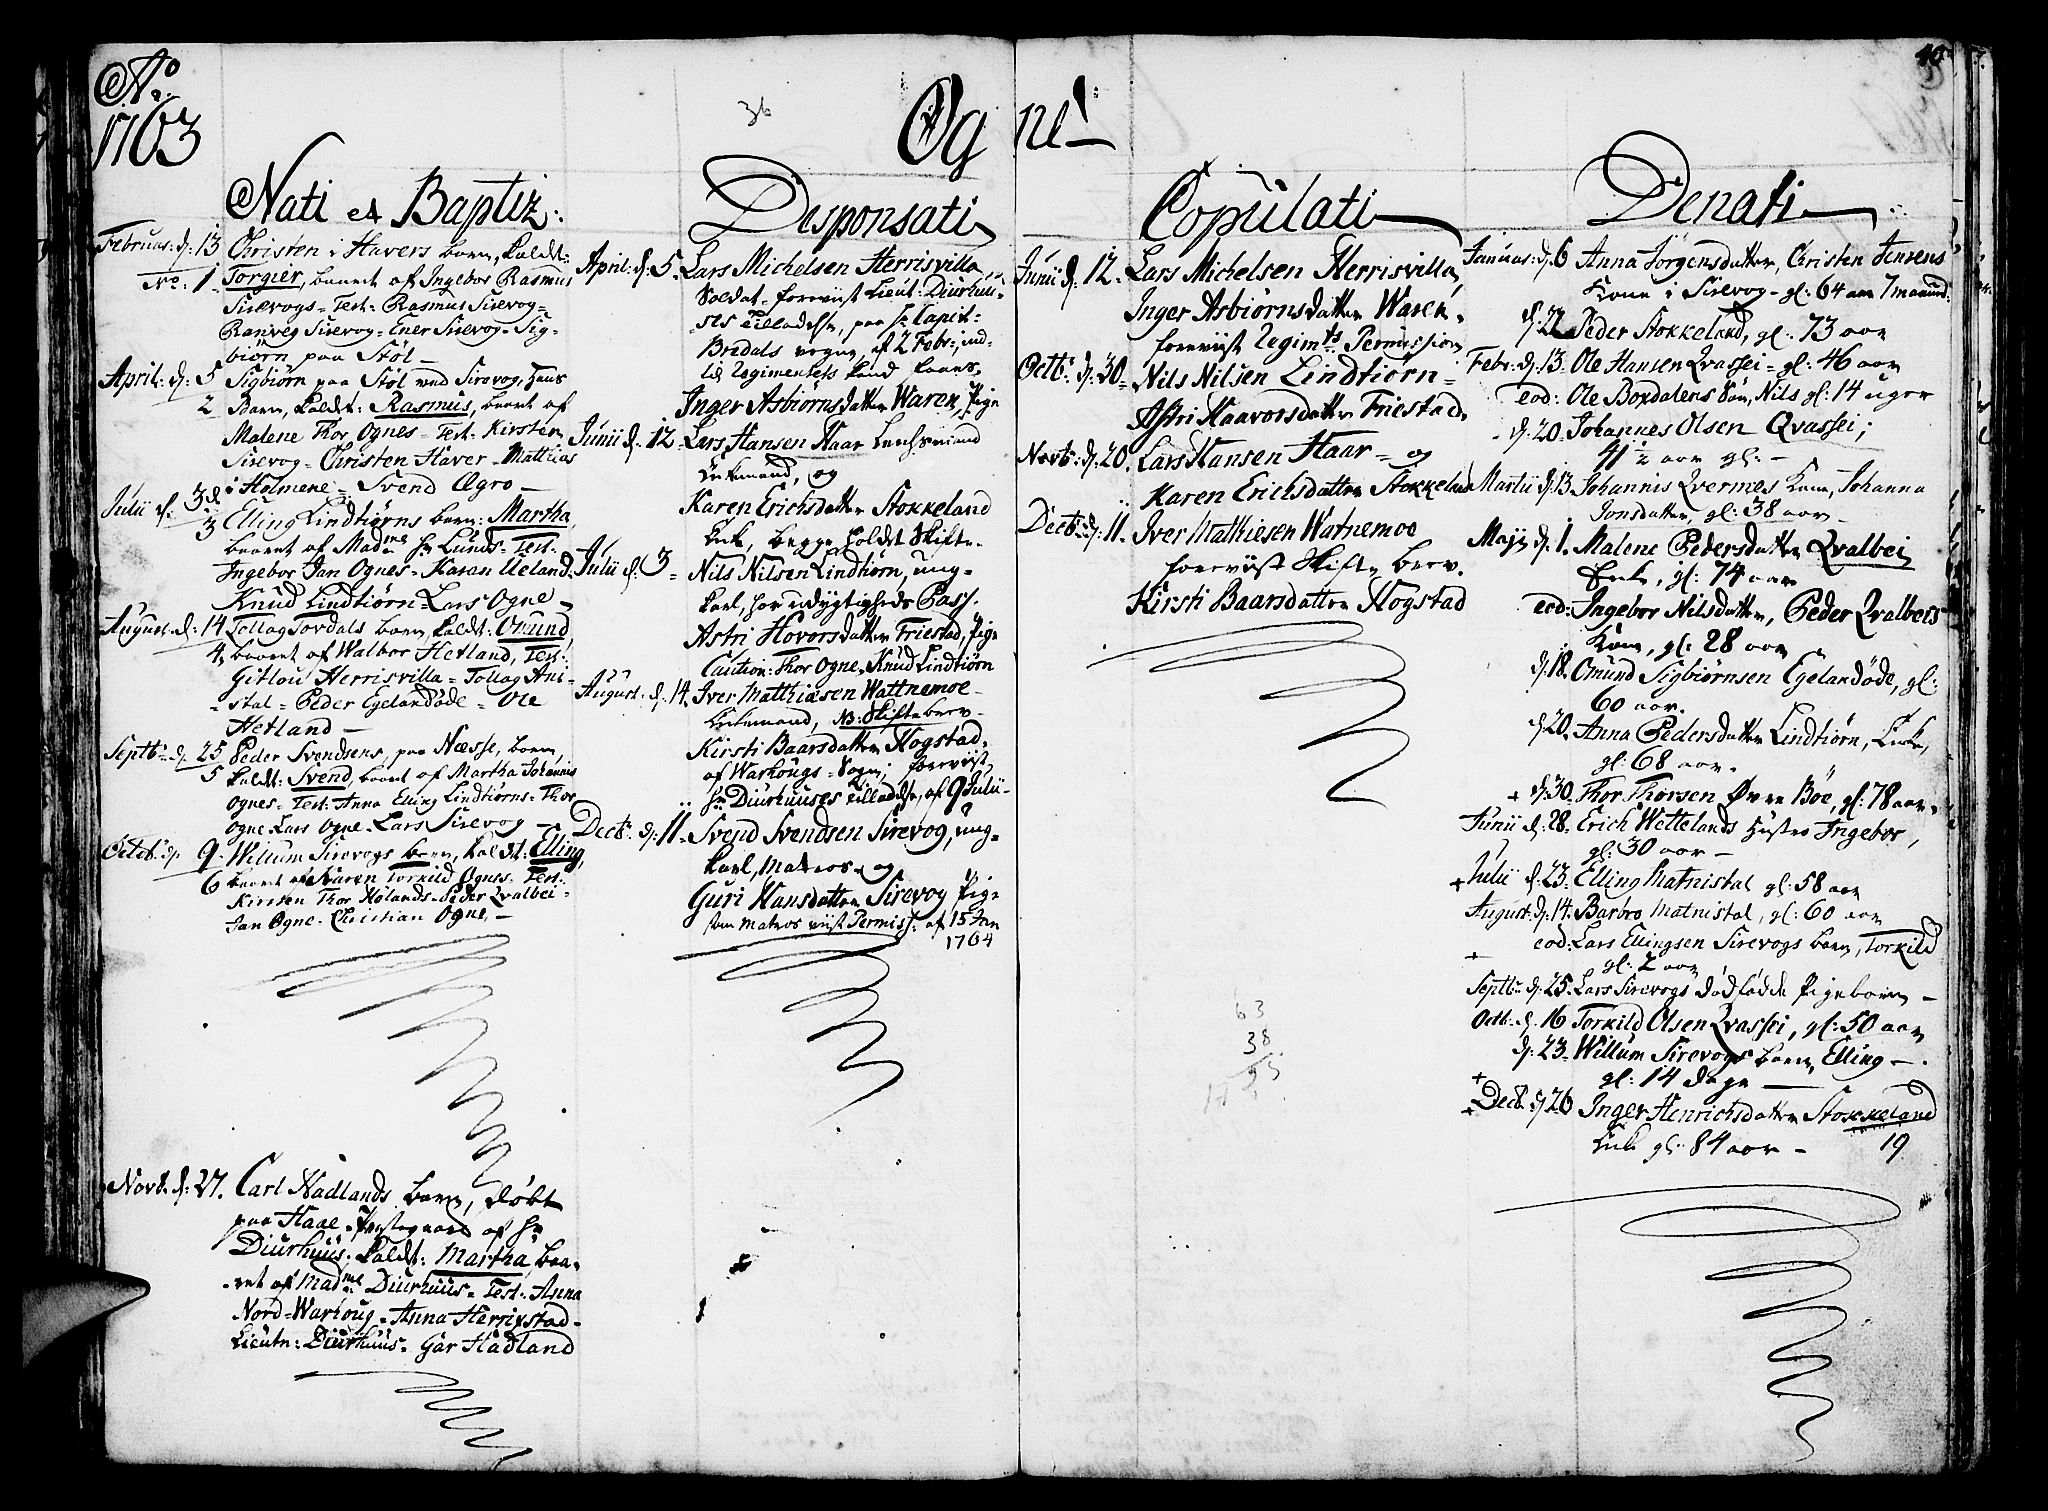 Ao
1763
36
Ogne
40
Nati et Baptiz:
Februar: d. 13 Christen i Havers barn, kaldt:
No: 1 Torgier, baaret af Ingebor Rasmus
Sirevogs = Test: Rasmus Sirevog =
Ranveg Sirevog = Ener Sirevog = Sig-
biørn paa Støl —
April: d: 5 Sigbiørn paa Støl ved Sirevog, hans
2 Barn, kaldt: Rasmus, baaret af
Malene Thor Ognes = Test: Kirsten
Sirevog = Christen Haver = Matthias
i Holmene = Svend Ægro —
Julii d. 3
3 Elling Lindtiørns barn: Martha,
baaret af Madme Hr Lunds = Test:
Ingebor Jan Ognes = Karan Ueland
Knud Lindtiørn = Lars Ogne —
August: d. 14 Tollag Sordals barn, kaldt: Omund,
4, baaret af Walbor Hetland, Test:
Gitlou Herrisvilla = Tollag Ani-
= stal = Peder Egelandøde = Ole
Hetland —
Septbr d. 25 Peder Svendsens, paa Næsse, barn,
5 kaldt: Svend, baaret af Martha Johannis
Ognes = Test: Anna Elling Lindtiørns = Thor
Ogne Lars Ogne = Lars Sirevog —
Octob: d. 9. Willum Sirevogs barn, kaldt: Elling,
6 baaret af Karen Torkild Ognes = Test:
Kirsten Thor Hølands = Peder Qvalbei =
Jan Ogne = Christian Ogne, —
Novb. d: 27. Carl Hadlands barn, døbt
paa Haae = Prestegaard af Hr
Diurhuus, kaldt: Martha, baa-
ret af Madme Diurhuus = Test: Anna
Nord-Warhoug = Anna Herrixstad =
Lieutn: Diurhuus = Gar Hadland
Desponsati
April: d: 5. Lars Michelsen Herrisvilla,
Soldat = foreviist Lieut: Diurhuu-
ses Tilladelse, paa Hr Capit:
Bredals vegne, af 2 Febr:, ind-
til Regimentets kand faaes,
Inger Asbiørnsdatter Waren, Pige
Junii d. 12. Lars Hansen Haar Lensmand
Enkemand, og
Karen Erichsdatter Stokkeland
Enke, begge holdet Skifte.
Julii d. 3 = Nils Nilsen Lindtiørn, ung-
karl, har udygtigheds Pass.
Astri Hovorsdatter Friestad, Pige
Caution: Thor Ogne, Knud Lindtiørn
August: d. 14. Iver Matthiesen Wattnemoe =
Enkemand, NB: Skiftebrev =
Kirsti Baarsdatter Hogstad,
af Warhougs = Sogn; foreviist
Hr Diurhuuses Tilladelse, af 9 Julii —
Decb: d: 11. Svend Svendsen Sirevog, ung-
karl, Matros = og
Guri Hansdatter Sirevog Pige
som Matros viist Permiss: af 15 Jan
1764
Copulati
Junii d. 12. Lars Michelsen Herrisvilla,
Inger Asbiørnsdatter Waren.
foreviist Regimts Permission
Octb: d. 30 = Nils Nilsen Lindtiørn =
Astri Haavorsdatter Friestad,
Novb: d. 20. Lars Hansen Haar = og
Karen Erichsdatter Stokkeland
Decb: d. 11. Iver Mathiesen Watnemoe
foreviist Skifte brev.
Kirsti Baarsdatter Hogstad
63
38
Denati
Januar: d. 6 Anna Jörgensdatter, Christen Jensens
Kone i Sirevog = gl: 64 aar 7 maaned:
d. 22 Peder Stokkeland, gl: 73 aar
Febr: d. 13. Ole Hansen Qvassei = gl: 46 aar
eod: Ole Boxdalens Søn, Nils gl: 14 uger
d. 20. Johannes Olsen Qvassei;
41 1/2 aar gl: —
Martii d. 13. Johannis Qvermes Kone, Johanna
Jonsdatter, gl: 38 aar —
Maji d. 1. Malene Pedersdatter Qvalbei
Enke, gl: 74 aar
eod: Ingebor Nilsdatter, Peder Qvalbers
Kone, gl: 28 aar
d. 18. Omund Sigbiørnsen Egelandøde, gl:
60 aar.
d. 20. Anna Pedersdatter Lindtiørn, Enke,
gl: 68 aar.
+ d. 30. Thor Thorsen Øvre Böe, gl: 78 aar.
Junii d. 28. Erich Wettelands Hustro Ingebor,
gl: 30 aar —
+ Julii d. 23. Elling Matnistal gl: 58 aar
August: d. 14. Barbro Matnistal, gl: 60 aar
eod: Lars Ellingsen Sirevogs barn, Torkild
+ gl: 2 aar
Septbr d. 25. Lars Sirevogs dødfødde Pigebarn —
Octb: d. 16 Torkild Olsen Qvassei, gl: 50 aar
d. 23. Willum Sirevogs barn, Elling —
+ gl: 14 dage —
+ Decb. d. 26 Inger Henrichsdatter Stokkeland
Enke gl: 84 aar — 19